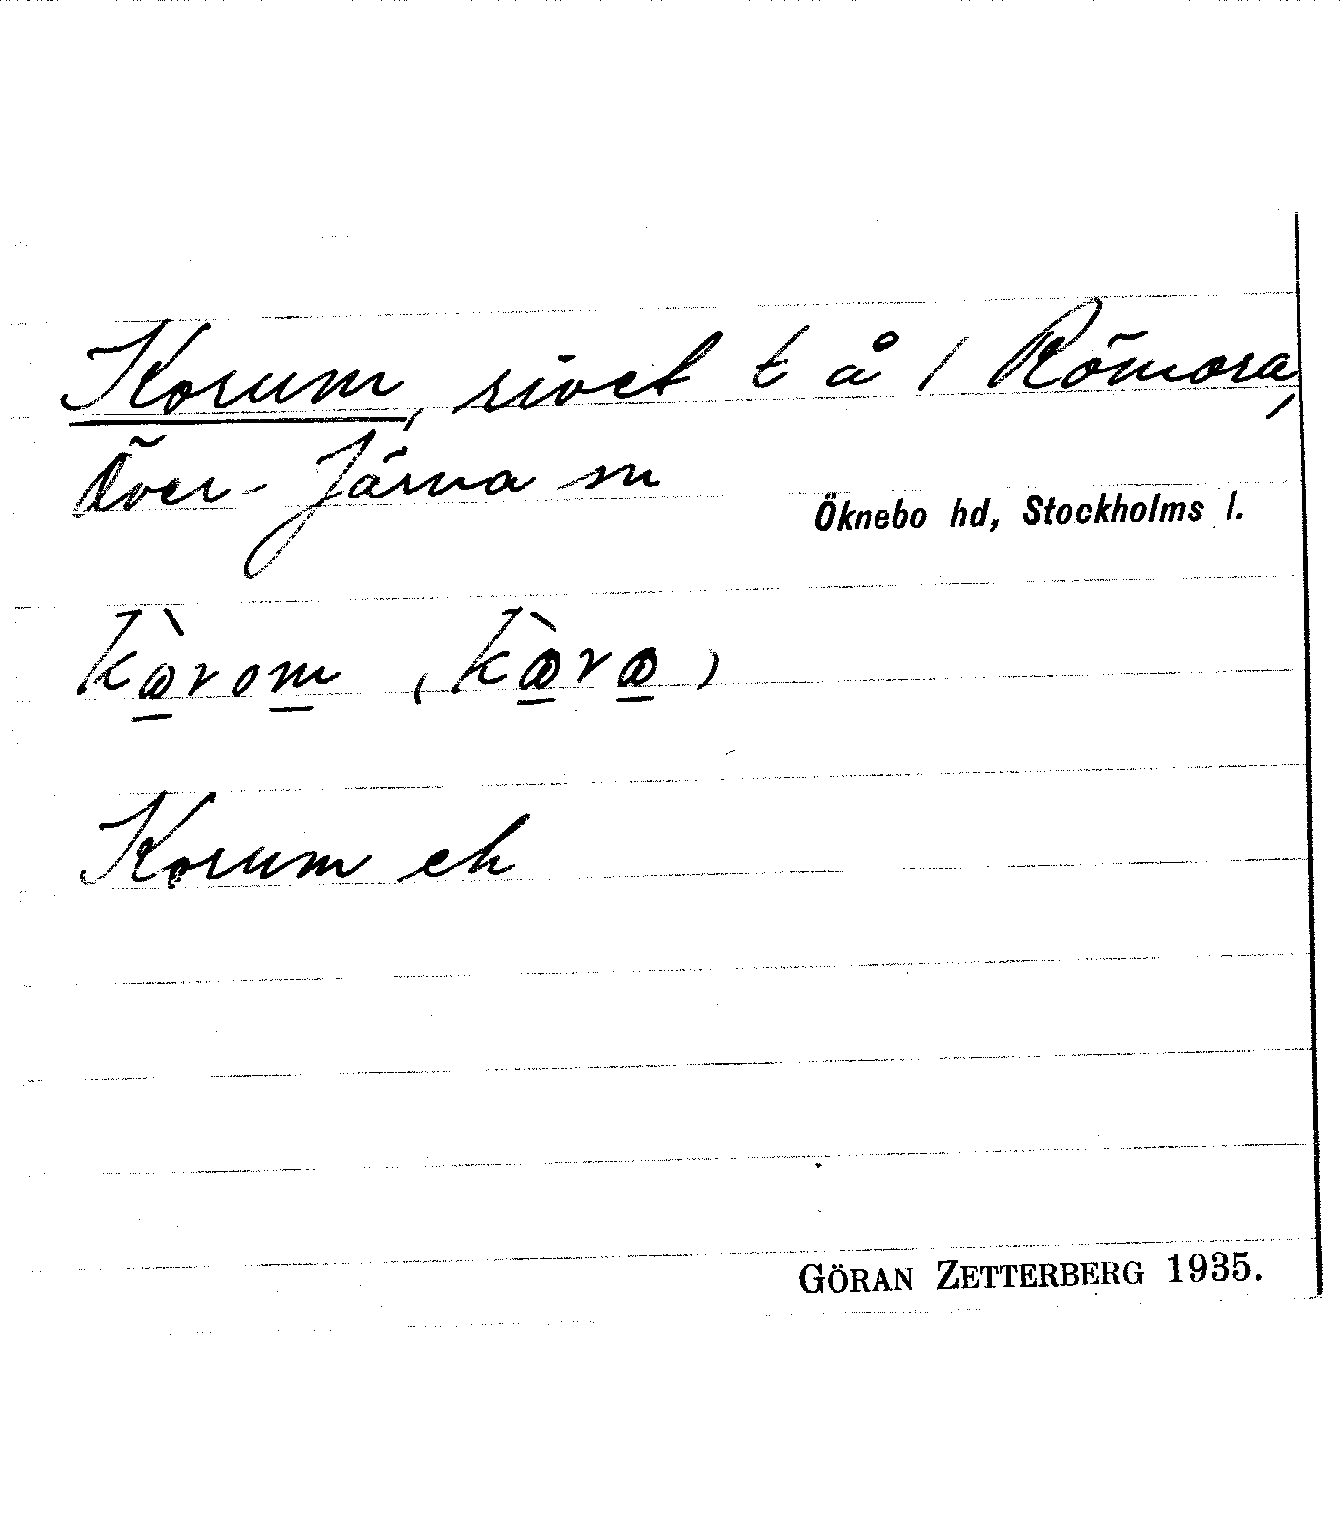 Korum, rivet t å / Römora,
Över-Järna sn
Öknebo hd, Stockholms l.
kàrom (kàra)
Korum ek
GÖRAN ZETTERBERG 1935.